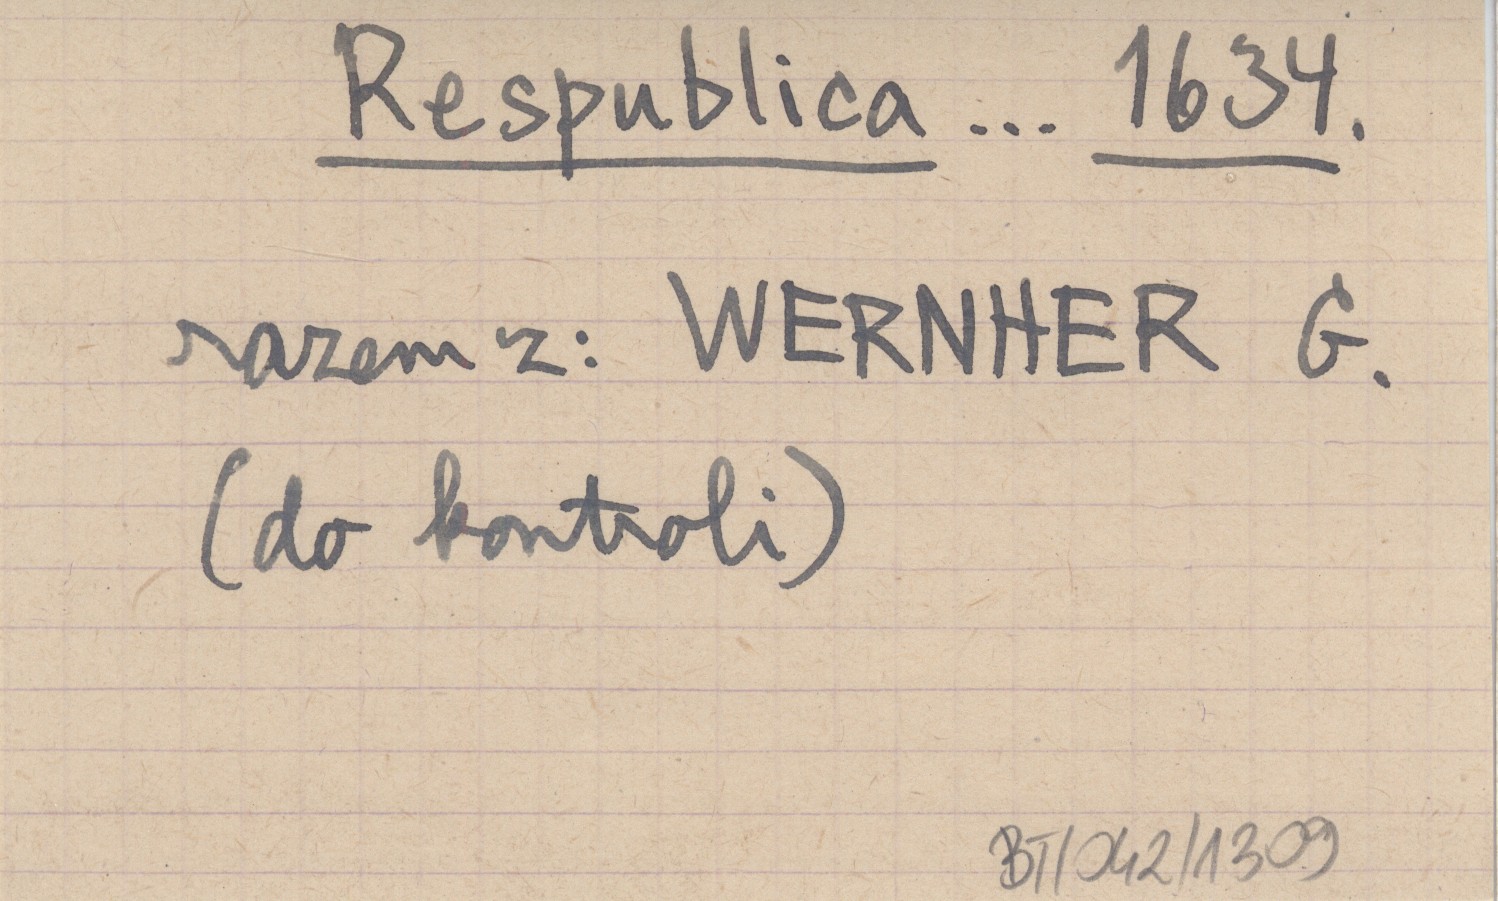 Respublica ... 1634.
razem z: WERNHER G.
(do kontroli)
BT/042/1309